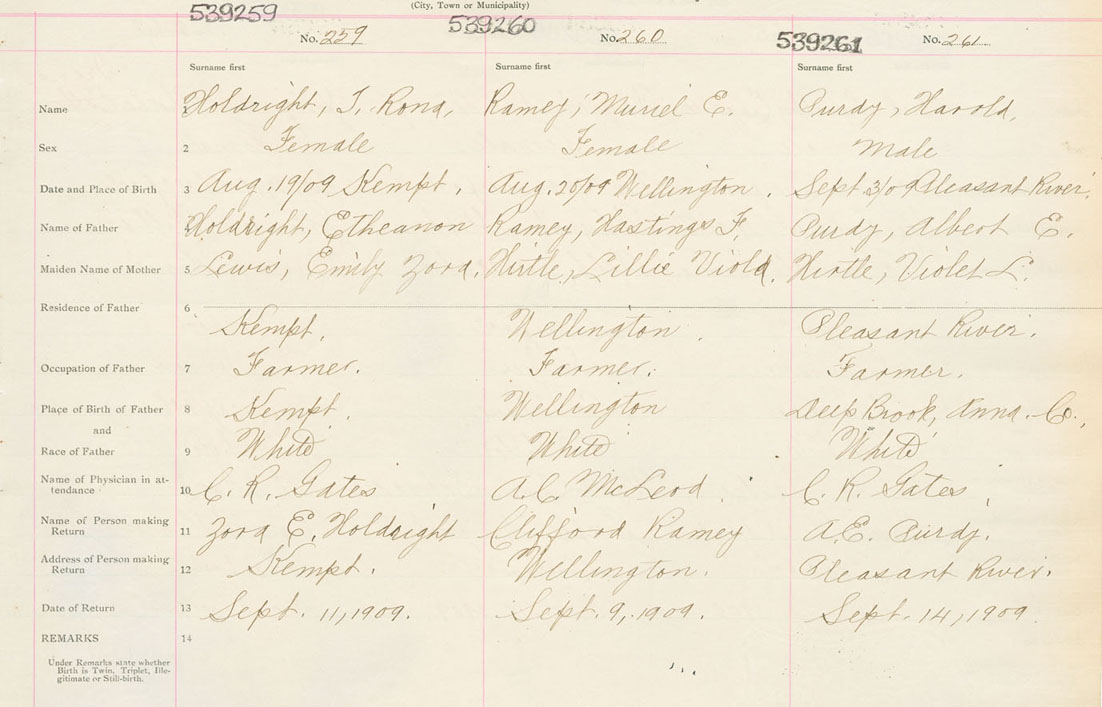 (City, Town or Municipality)
539259 539260 539261
No. 259 No. 260 No. 261
Surname first Surname first Surname first
Name Holdright, I. Rona, Ramey, Muriel E. Purdy, Harold,
Sex 2 Female Female Male
Date and Place of Birth 3 Aug. 19/09 Kempt, Aug. 20/09 Wellington. Sept 3/09 Pleasant River,
Name of Father Holdright, Etheanon Ramey, Hastings F. Purdy, Albert E.
Maiden Name of Mother 5 Lewis, Emily Zora, Hirtle, Lillie Viola. Hirtle, Violet L.
Residence of Father 6
Kempt. Wellington. Pleasant River.
Occupation of Father 7 Farmer. Farmer. Farmer.
Place of Birth of Father 8 Kempt. Wellington Deep Brook, Anna. Co.,
and
Race of Father 9 White White White
Name of Physician in at-
tendance 10 C. R. Gates A. C. McLeod C. R. Gates,
Name of Person making
Return 11 Zora E. Holdright Clifford Ramey A. E. Purdy.
Address of Person making
Return 12 Kempt. Wellington. Pleasant River.
Date of Return 13 Sept. 11, 1909. Sept. 9, 1909. Sept. 14, 1909
REMARKS 14
Under Remarks state whether
Birth is Twin, Triplet, Ille-
gitimate or Still-birth.